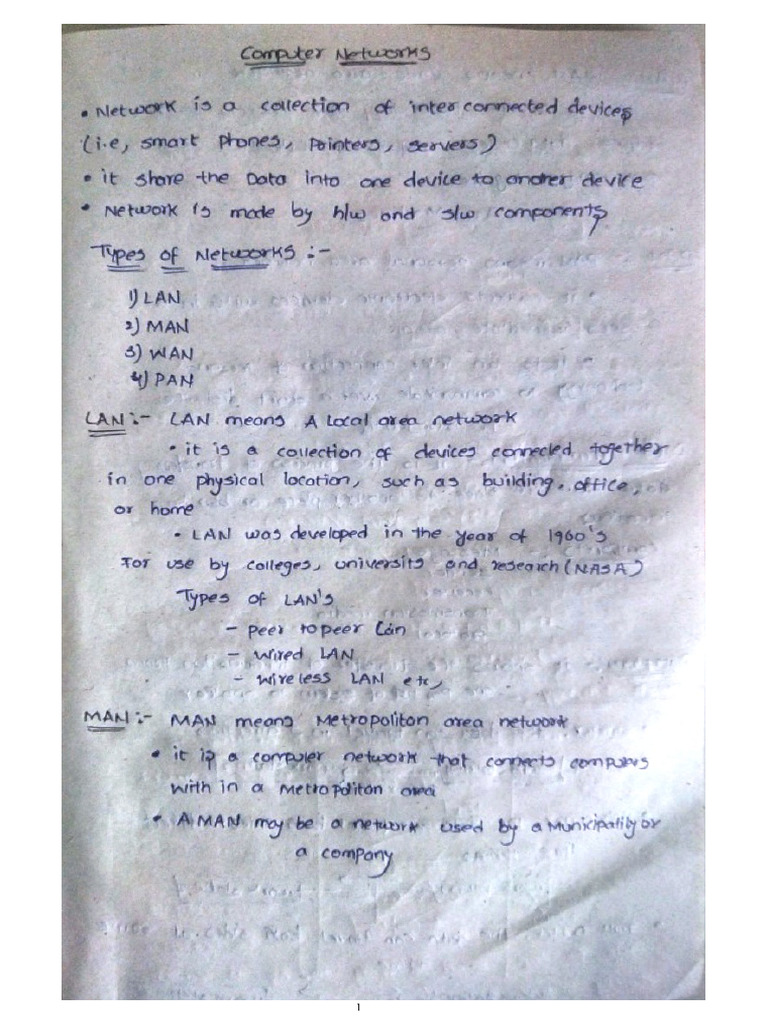 Computer Networks
• Network is a collection of inter connected devices
(i.e, smart phones, Pointers, servers)
• it share the Data into one device to another device
• Network is made by h/w and s/w components
Types of Networks :-
1) LAN
2) MAN
3) WAN
4) PAN
LAN :- LAN means A Local area network
• it is a collection of devices connected together
in one physical location, such as building, office,
or home
• LAN was developed in the year of 1960's
For use by colleges, universits and research (NASA)
Types of LAN's
- peer to peer Lan
- wired LAN
- wireless LAN etc,
MAN :- MAN means Metropoliton area network
• it is a computer network that connects computers
with in a Metropoliton area
• A MAN may be a network used by a Municipality or
a company
1